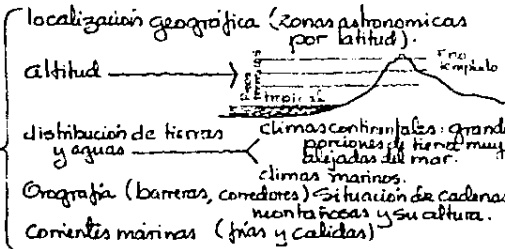 localización geográfica (zonas astronomicas
por latitud).
altitud
Frio
templado
Pisos
térmicos
tropical
distribución de tierras
y aguas
climas continentales: grande
porciones de tierra muy
alejadas del mar.
climas marinos.
Orografía (barreras, corredores) Situación de cadenas
montañosas y su altura.
Corrientes marinas (frías y calidas)